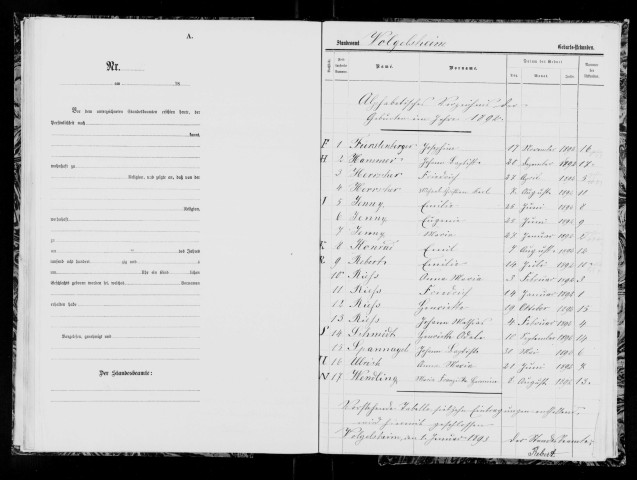 A.
Nr.
am 18
Vor dem unterzeichneten Standesbeamten erschien heute, der
Persönlichkeit nach
kannt,
wohnhaft zu
Religion, und zeigte an, daß von der
Religion,
wohnhaft
zu
am des Jahres
tausend acht hundert zig und
Uhr ein Kind lichen
Geschlechts geboren worden sei, welches Vornamen
erhalten habe
Vorgelesen, genehmigt und
Der Standesbeamte:
Standesamt Volgelsheim Geburts-Urkunden.
Name. Vorname. Datum der Geburt Nummer
Tag. Monat. Jahr.
Alphabetisches Verzeichniß der
Geburten im Jahre 1892.
F 1 Fürstenberger Josephin 17 November 1892 16
H 2 Hammer Johann Baptiste 28 Dezember 1892 17
3 Herrscher Friedrich 28 April 1892 5
4 Herrscher 8 August 1892 11
I 5 Jenny Emilie 25 Juni 1892 8
6 Jenny Eugenie 25 Juni 1892 9
7 Jenny Maria 28 Januar 1892 2
K 8 Konrad Emil 9 August 1892 12
R 9 Robert Emilie 14 Juli 1892 10
10 Rieß Anna Maria 3 Februar 1892 3
11 Rieß Friedrich 14 Januar 1892 1
12 Rieß Henriette 19 Oktober 1892 15
13 Rieß Johann Mathias 4 Februar 1892 4
S 14 Schmidt Henriette Adele 18 September 1892 14
15 Spannagel Johann Baptiste 30 Mai 1892 6
U 16 Ulrich Anna Maria 21 Juni 1892 7
W 17 Wendling Maria Franziska 8 August 1892 13
Vorstehende Tabelle, siebzehn Eintragungen enthaltend,
wird hiermit geschlossen
Volgelsheim, am 1. Januar 1893 Der Standesbeamte,
Robert